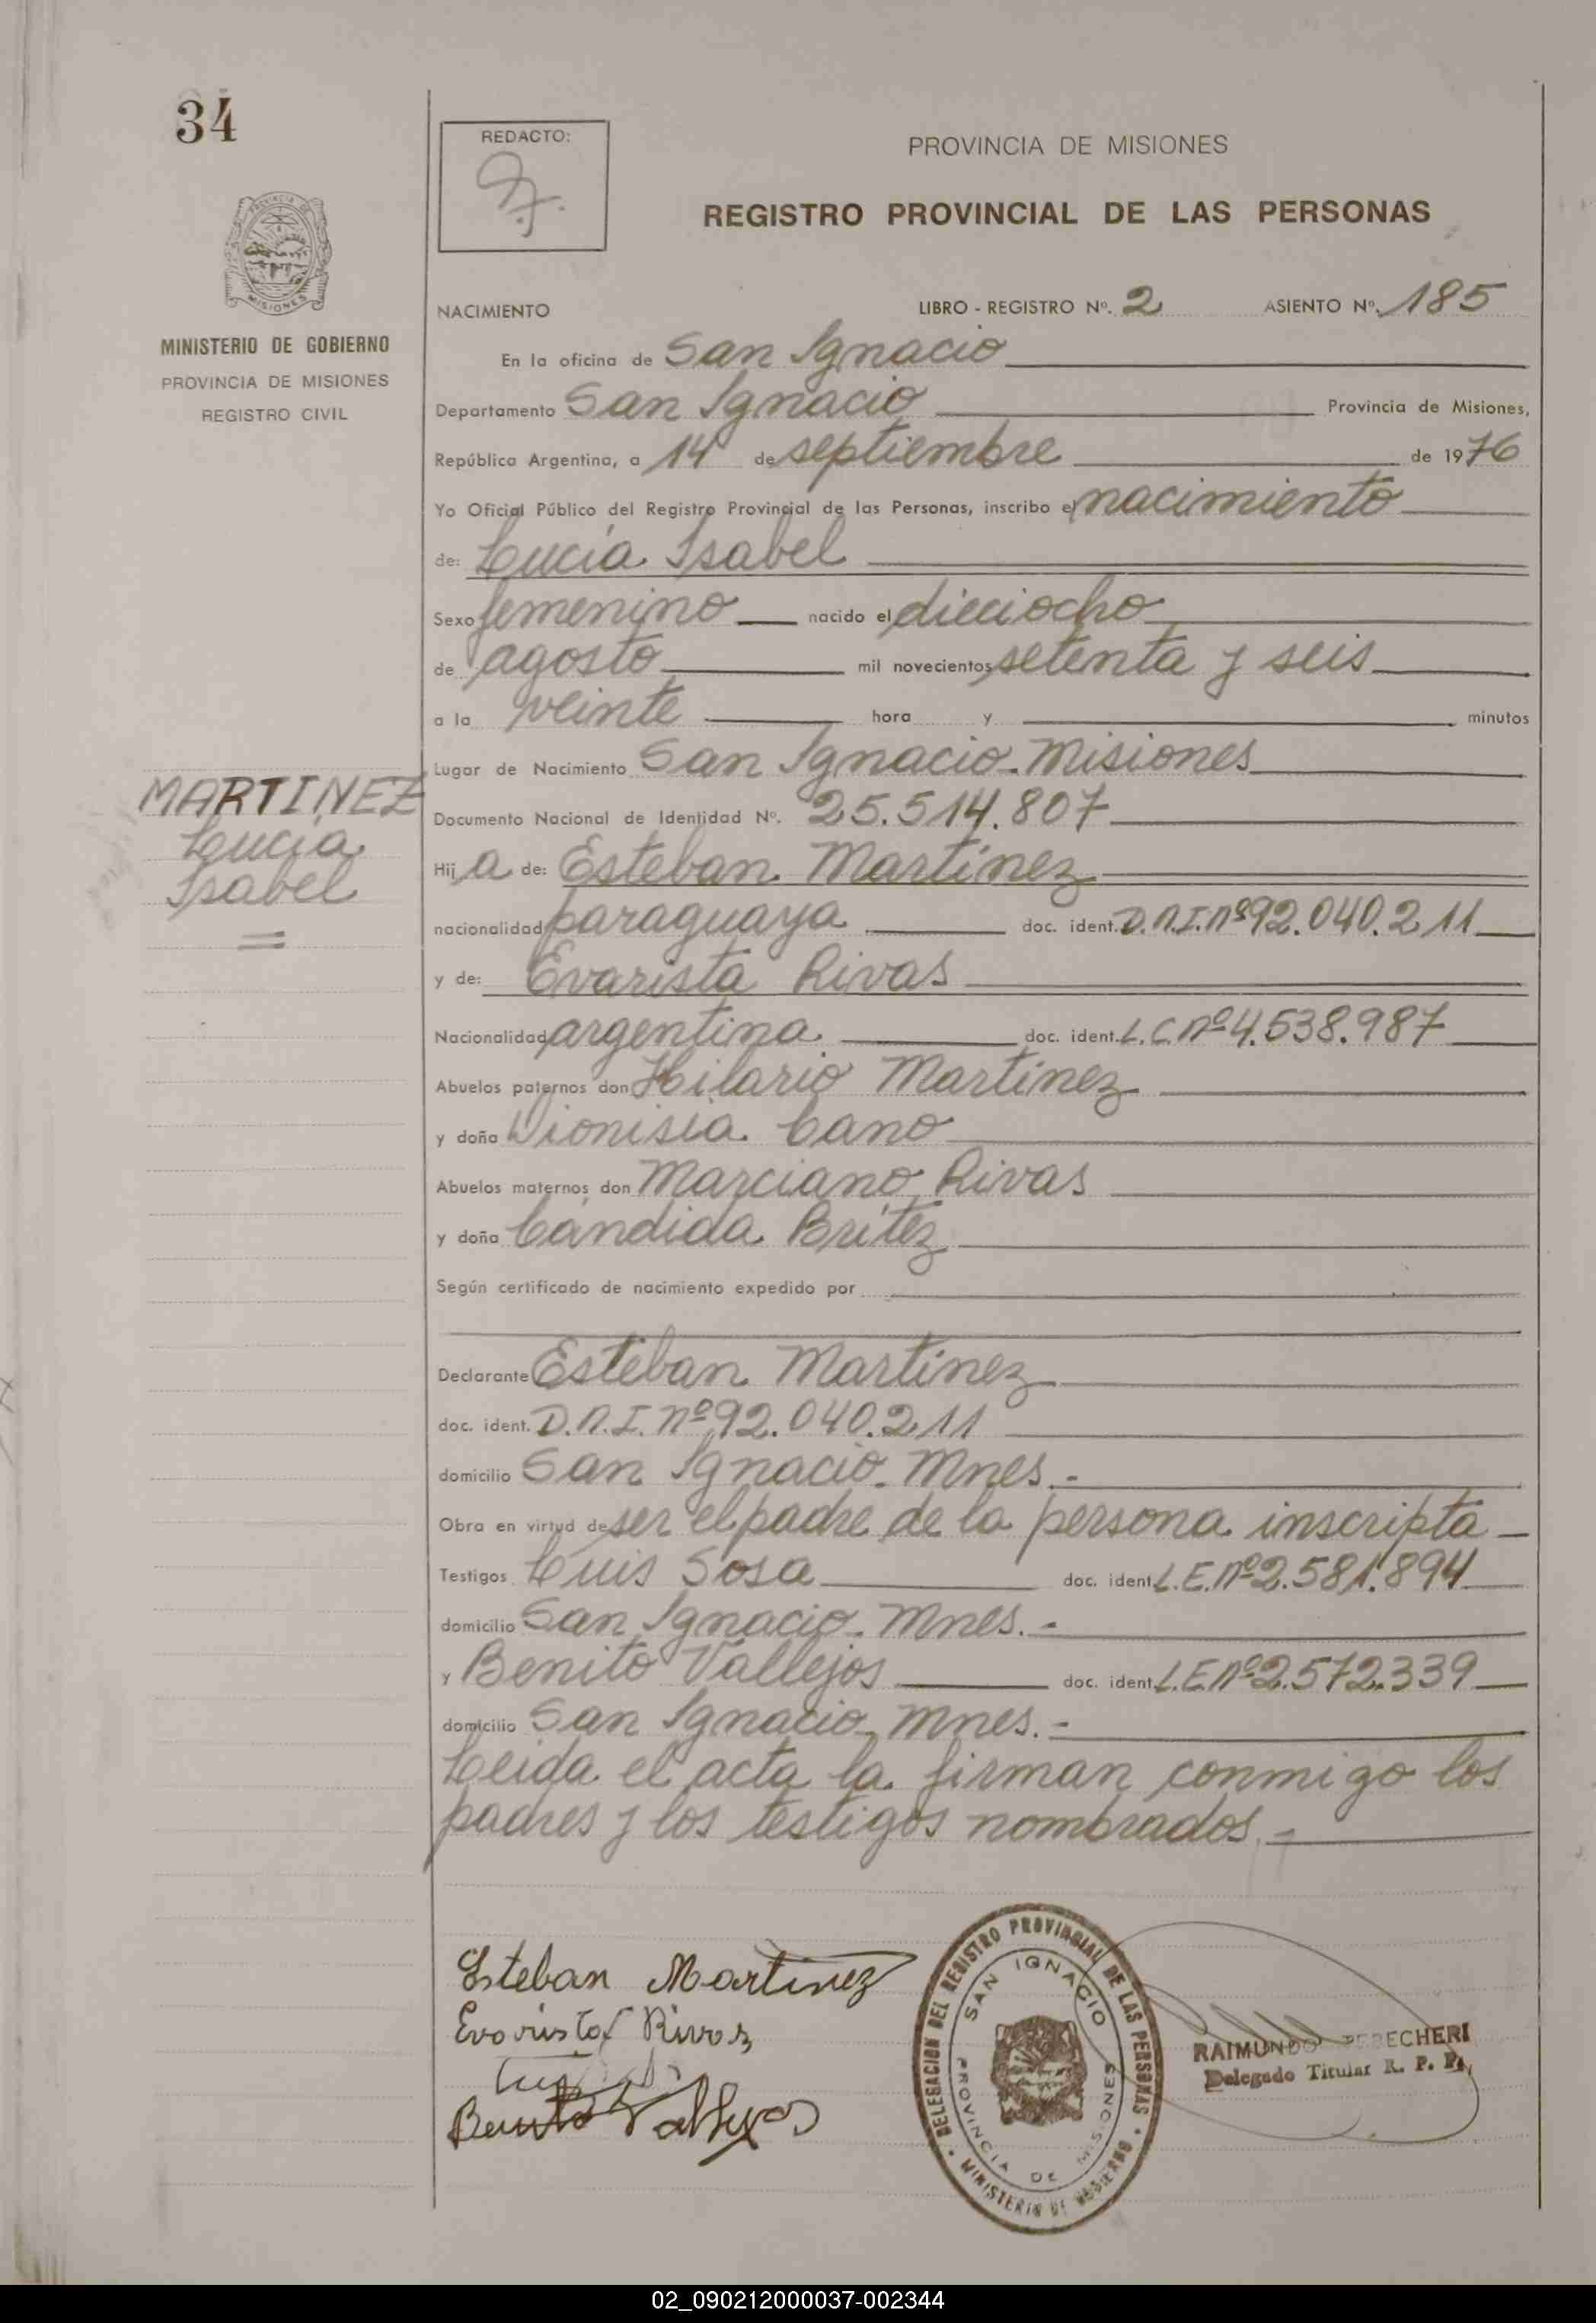 34
REDACTO:
PROVINCIA DE MISIONES
REGISTRO PROVINCIAL DE LAS PERSONAS
MISIONES
MINISTERIO DE GOBIERNO
PROVINCIA DE MISIONES
REGISTRO CIVIL
NACIMIENTO LIBRO - REGISTRO Nº. 2 ASIENTO Nº. 185
En la oficina de San Ignacio
Departamento San Ignacio Provincia de Misiones,
República Argentina, a 14 de septiembre de 1976
Yo Oficial Público del Registro Provincial de las Personas, inscribo el nacimiento
de: Lucía Isabel
Sexo femenino nacido el dieciocho
de agosto mil novecientos setenta y seis
a la veinte hora y minutos
Lugar de Nacimiento San Ignacio - Misiones
MARTINEZ
Lucía
Isabel
Documento Nacional de Identidad Nº. 25.514.807
Hij a de: Esteban Martínez
nacionalidad paraguaya doc. ident. D.N.I. nº 92.040.211
y de: Evarista Rivas
Nacionalidad argentina doc. ident. L.C. nº 4.538.987
Abuelos paternos don Hilario Martínez
y doña Dionisia Cano
Abuelos maternos don Marciano Rivas
y doña Cándida Brítez
Según certificado de nacimiento expedido por
Declarante Esteban Martínez
doc. ident. D.N.I. nº 92.040.211
domicilio San Ignacio - Mnes. -
Obra en virtud de ser el padre de la persona inscripta
Testigos Luis Sosa doc. ident. L.E. nº 2.581.894
domicilio San Ignacio - Mnes. -
y Benito Vallejos doc. ident. L.E. nº 2.572.339
domicilio San Ignacio - Mnes. -
Leida el acta la firman conmigo los
padres y los testigos nombrados. -
Esteban Martinez
Evarista Rivas
Benito Vallejos
DELEGACION DEL REGISTRO PROVINCIAL DE LAS PERSONAS
SAN IGNACIO
PROVINCIA DE MISIONES
MINISTERIO DE GOBIERNO
RAIMUNDO
Delegado Titular R. P. P.
02_090212000037-002344